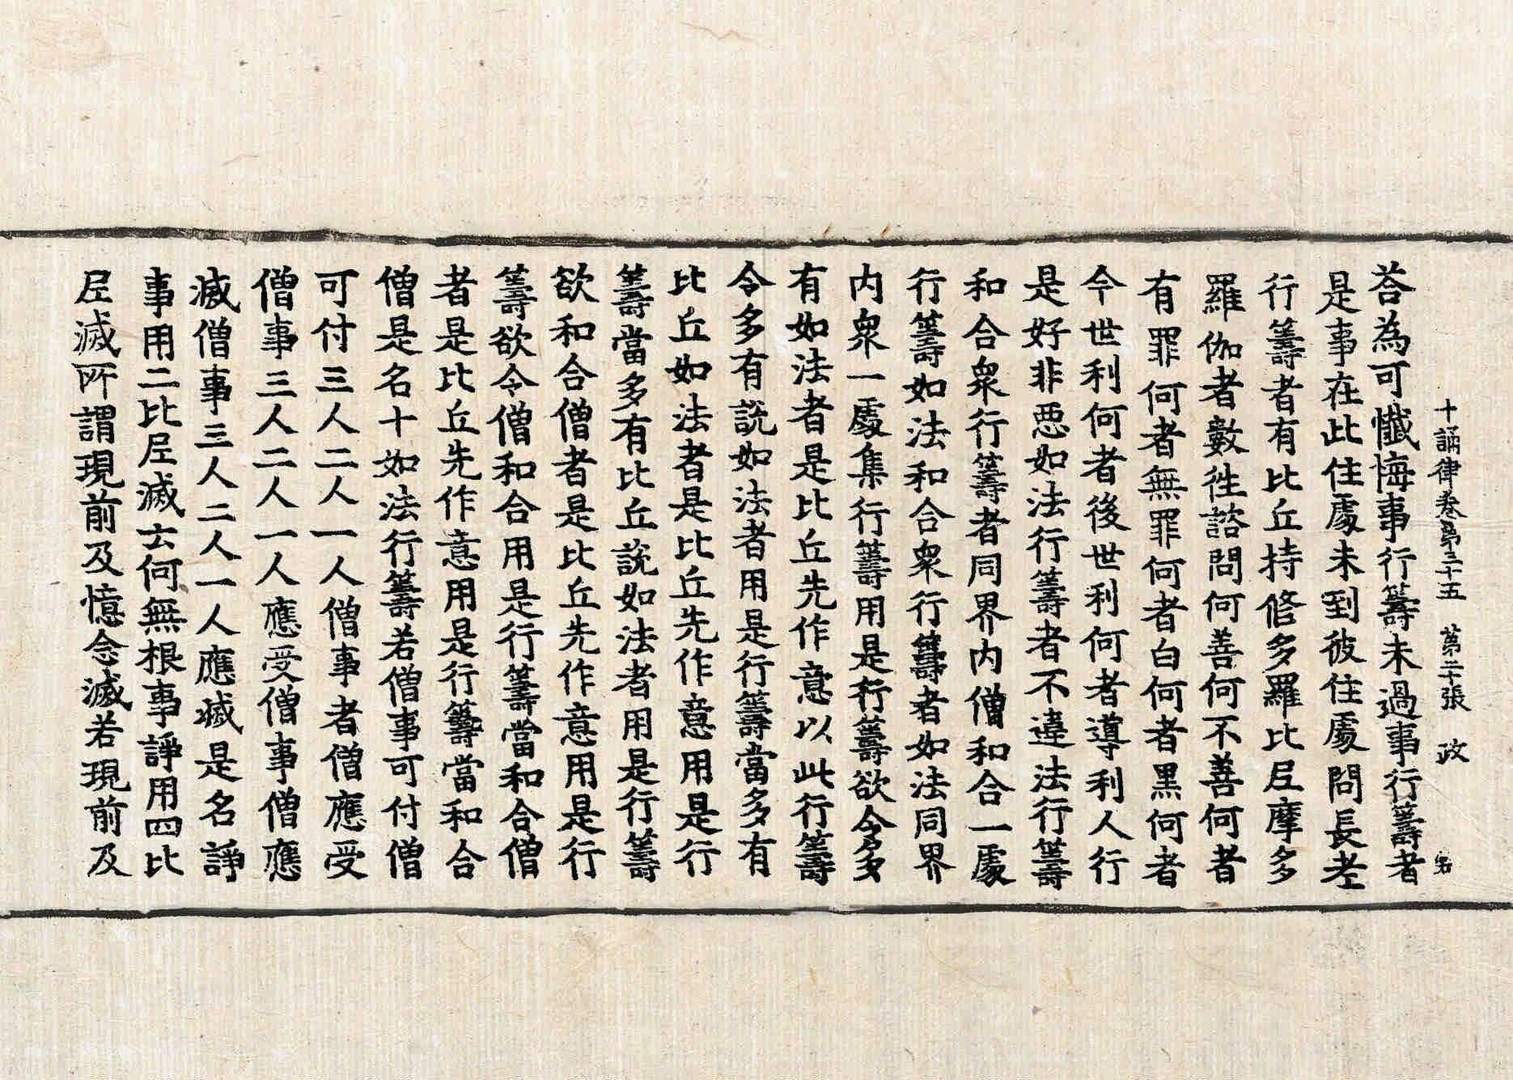 十誦律卷第三十五 第二十張 政
荅為可懺悔事行籌未過事行籌者
是事在此住處未到彼住處問長老
行籌者有比丘持修多羅比尼摩多
羅伽者數往諮問何善何不善何者
有罪何者無罪何者白何者黑何者
今世利何者後世利何者導利人行
是好非惡如法行籌者不違法行籌
和合衆行籌者同界内僧和合一處
行籌如法和合衆行籌者如法同界
内衆一處集行籌用是行籌欲令多
有如法者是比丘先作意以此行籌
令多有說如法者用是行籌當多有
比丘如法者是比丘先作意用是行
籌當多有比丘說如法者用是行籌
欲和合僧者是比丘先作意用是行
籌欲令僧和合用是行籌當和合僧
者是比丘先作意用是行籌當和合
僧是名十如法行籌若僧事可付僧
可付三人二人一人僧事者僧應受
僧事三人二人一人應受僧事僧應
滅僧事三人二人一人應滅是名諍
事用二比尼滅云何無根事諍用四比
尼滅所謂現前及憶念滅若現前及